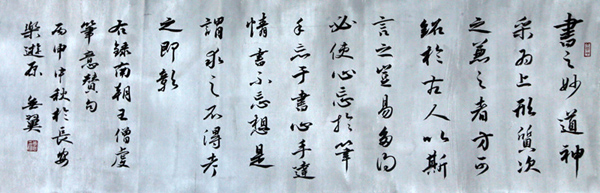 書之妙道神
采為上形質次
之兼之者方可
紹於古人以斯
言之豈易多得
必使心忘於筆
手忘于書心手達
情書不忘想是
謂求之不得考
之即彰
右錄南朝王僧虔
筆意贊句
丙申中秋於長安
樂遊原 翼